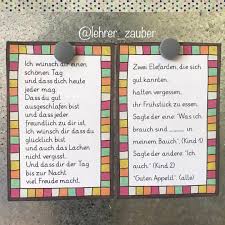 @lehrer_zauber
Ich wünsch dir einen
schönen Tag
und dass dich heute
jeder mag.
Dass du gut
ausgeschlafen bist
und dass jeder
freundlich zu dir ist.
Ich wünsch dir dass du
glücklich bist
und auch das Lachen
nicht vergisst.
Und dass dir der Tag
bis zur Nacht
viel Freude macht.
Zwei Elefanten, die sich
gut kannten,
hatten vergessen,
ihr Frühstück zu essen.
Sagte der eine "Was ich
brauch sind ______ in
meinem Bauch". (Kind 1)
Sagte der andere "Ich
auch." (Kind 2)
"Guten Appetit". (alle)